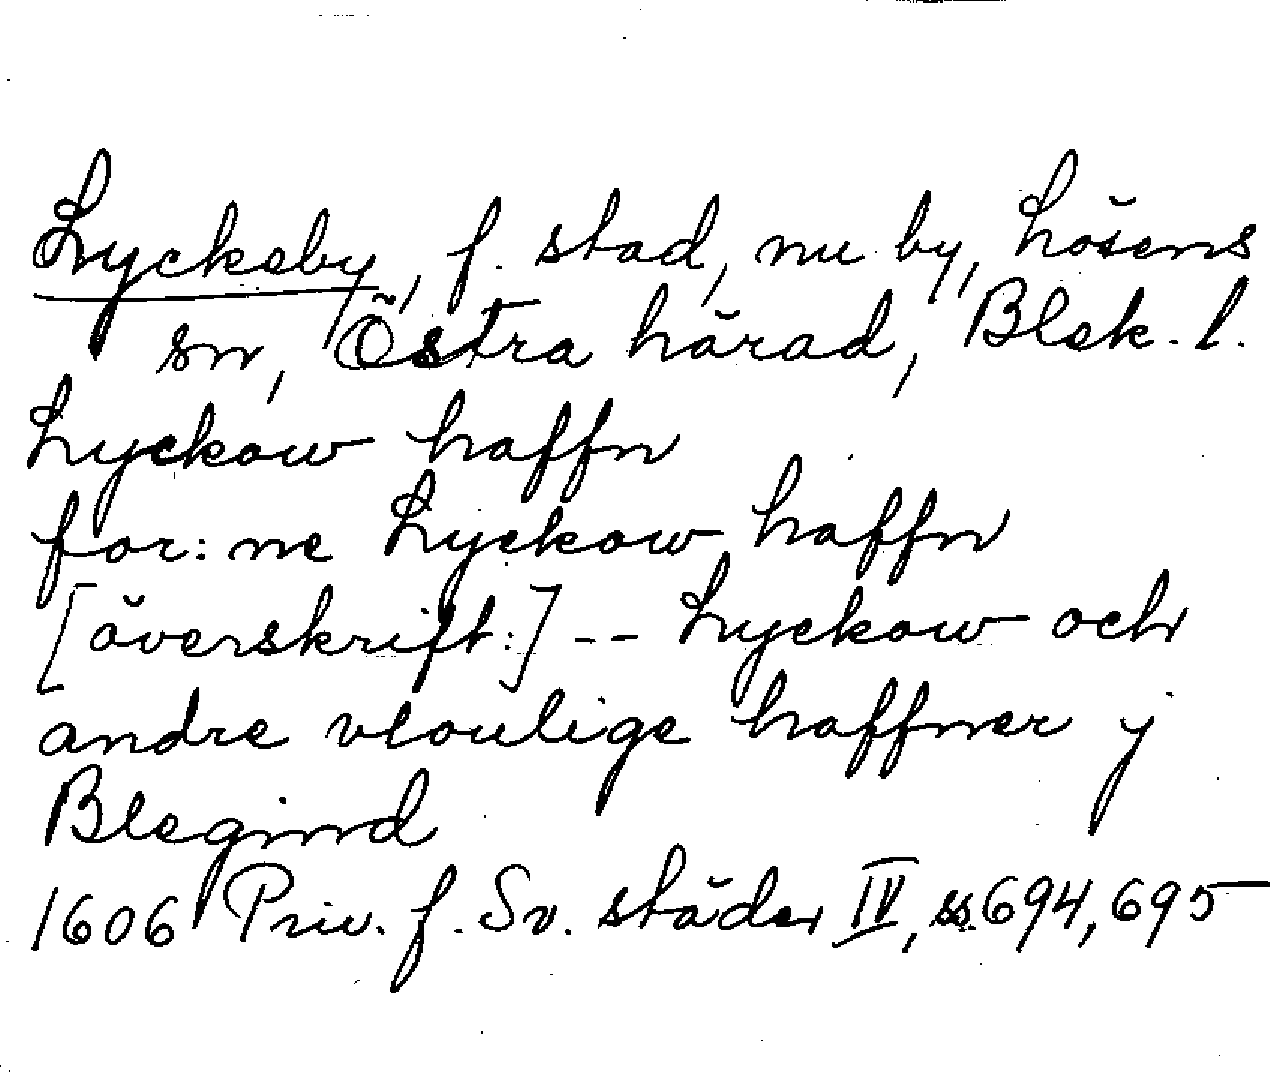 Lyckeby, f. stad, nu by, Lösens
sn, Östra härad, Blek. l.
Lyckow haffn
for:ne Lyckow haffn
[överskrift:] -- Lyckow och
andre vloulige haffner j
Blegind
1606 Priv. f. Sv. städer IV, ss. 694, 695